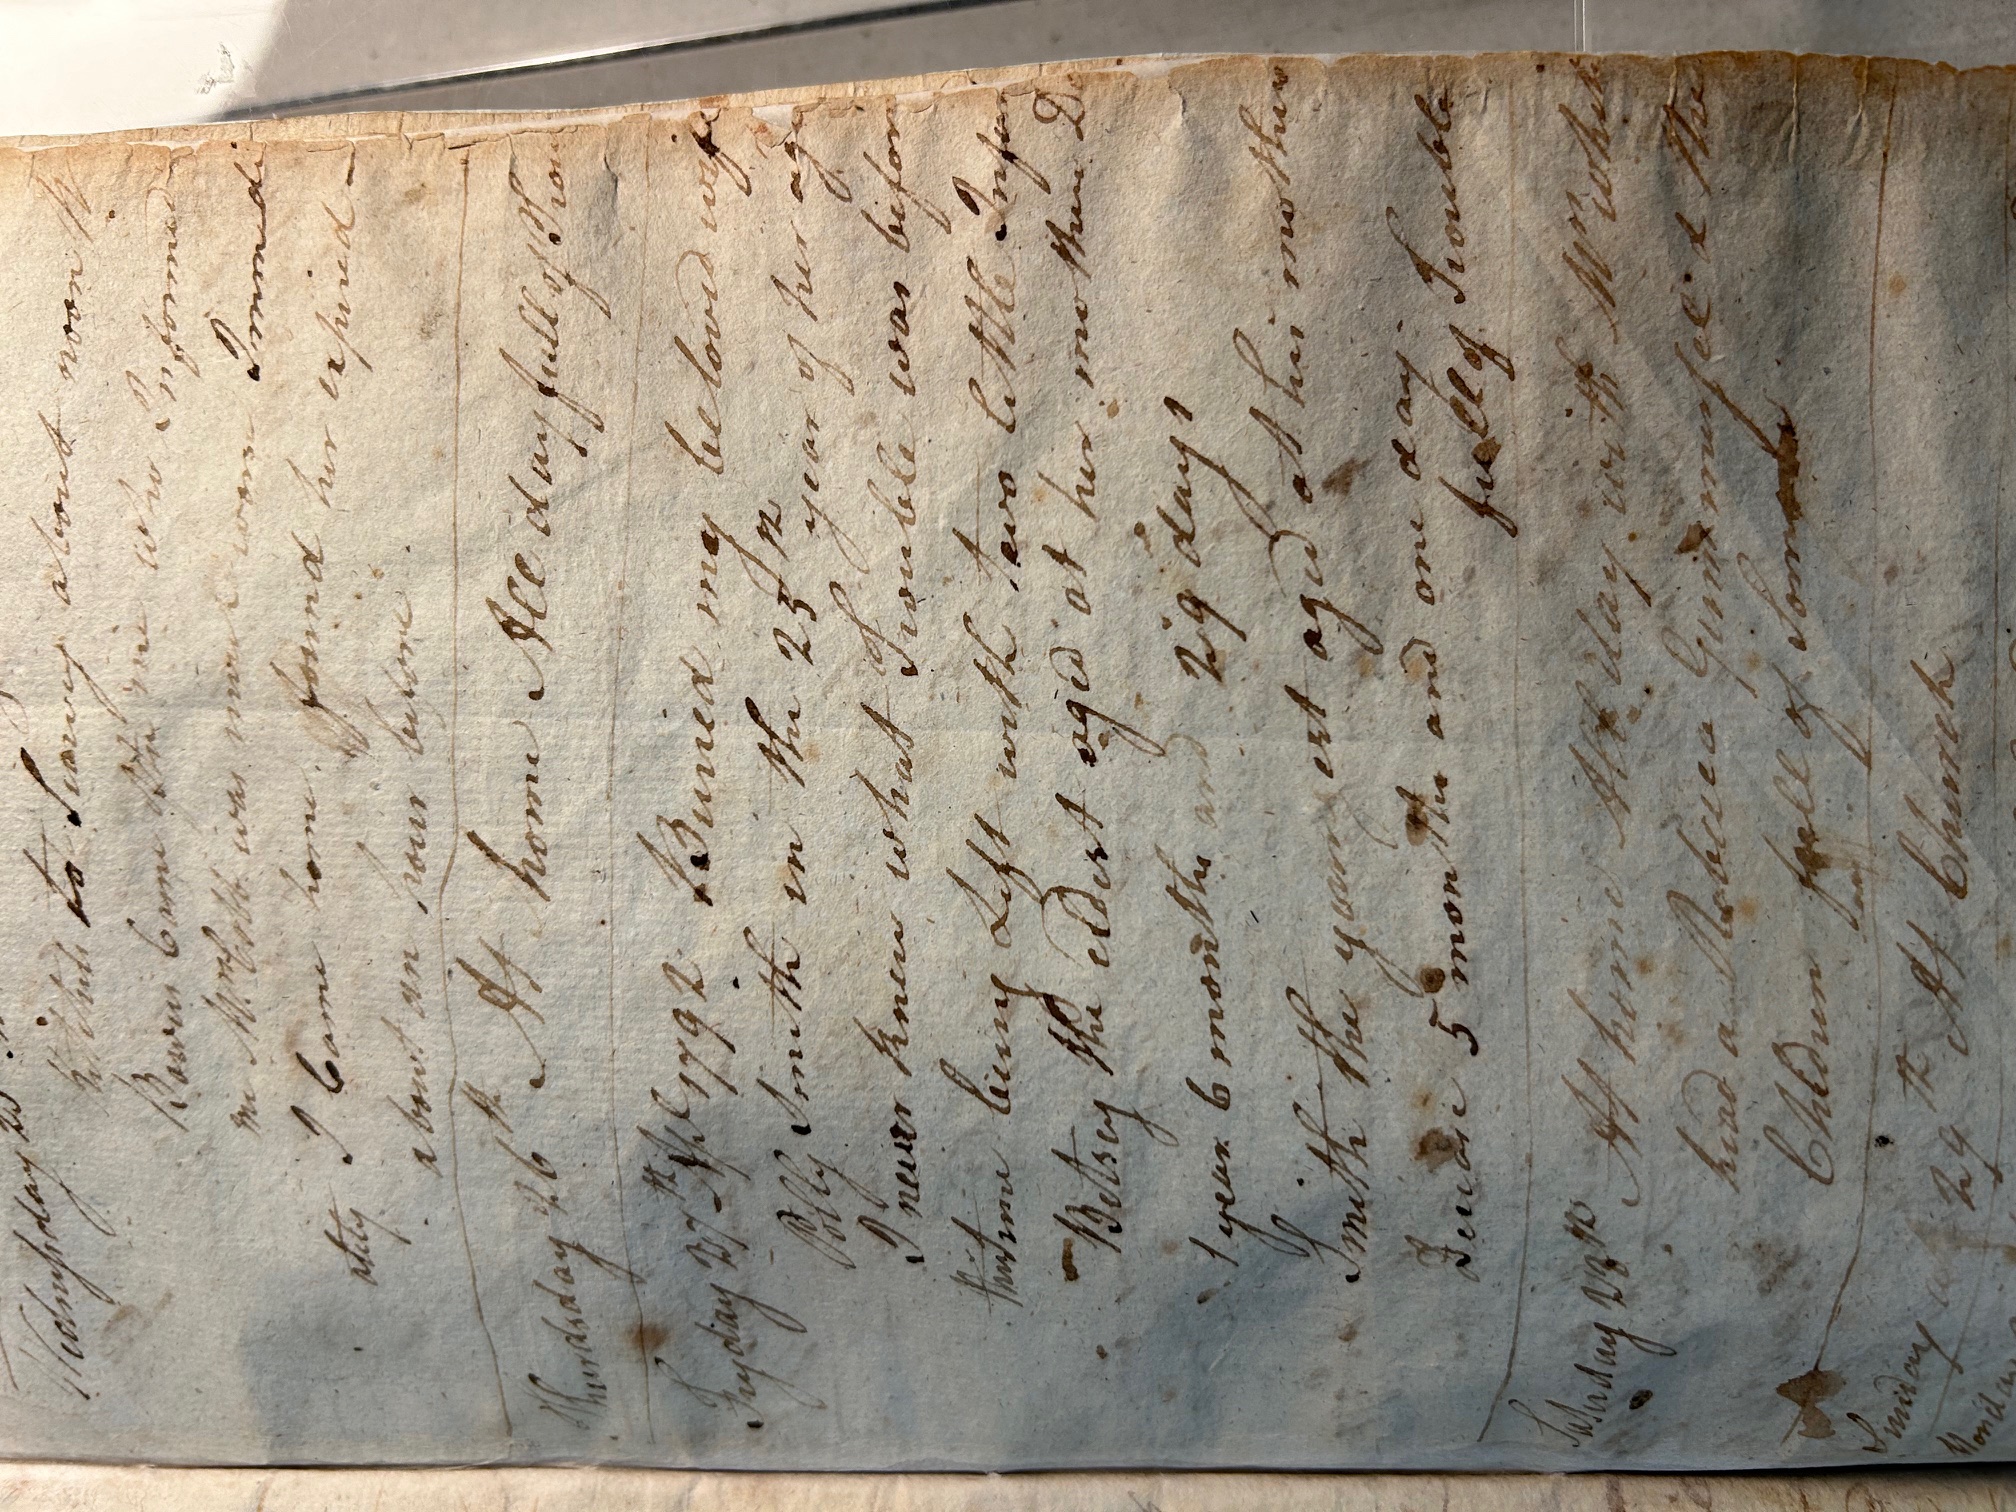 Wednesday 25
to Survey about noon W
Bowis Came for me who Informed
me Mrs was much worse Immedi
ately I Came home. found her expired
about an hour before
Thursday 26th At home All day full of Trou
Fryday 27th Apl 1792 Buried my beloved wife
Polly Smith in the 25th year of her age
I never knew what Trouble was before
this time being Left with two little Infan
Betsey the eldest aged at her mothers De
1 year 6 months and 29 days
Smith the young est aged at his mothers
Decase 5 months and one day
full of Trouble
Saturday 28th At home All day with Mrs
had a Rebecca the
Children full of Sorrow
Sunday 29th At Church
Monday